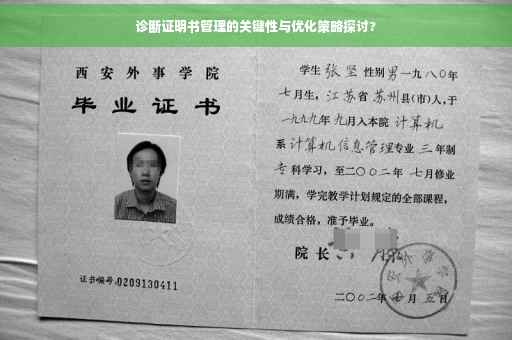 诊断证明书管理的关键性与优化策略探讨?
西安外事学院
毕业证书
证书编号:0209130411
学生 张坚 性别男一九八〇年
七月生,江苏省苏州县(市)人,于
一九九九年九月入本院 计算机
系计算机信息管理专业三年制
专科学习,至二〇〇二年七月修业
期满,学完教学计划规定的全部课程,
成绩合格,准予毕业。
院长
二〇〇二年 月五日